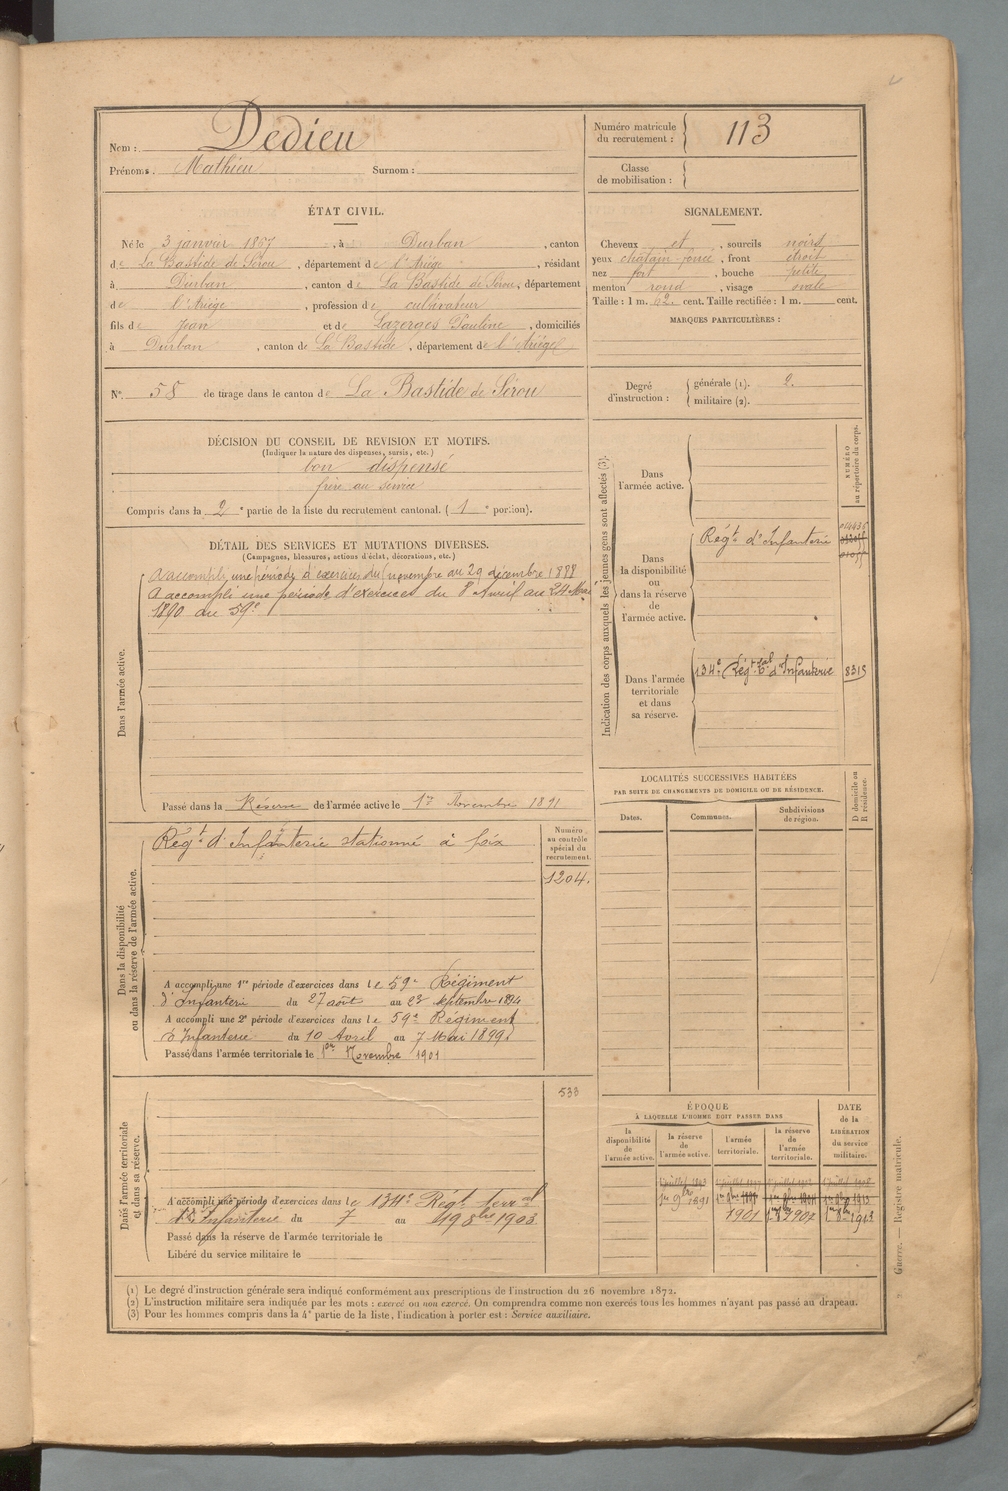 Nom : Dedieu
Prénoms : Mathieu Surnom :
Numéro matricule du recrutement : 113
Classe de mobilisation :
ÉTAT CIVIL.
Né le 3 janvier 1867, à Durban, canton
de La Bastide de Sérou, département de l'Ariège, résidant
à Durban, canton de La Bastide de Sérou, département
de l'Ariège, profession de cultivateur
fils de Jean et de Lazerges Pauline, domiciliés
à Durban, canton de La Bastide, département de l'Ariège
SIGNALEMENT.
Cheveux et, sourcils noirs
yeux châtain foncé, front étroit
nez fort, bouche petite
menton rond, visage ovale
Taille : 1 m. 62 cent. Taille rectifiée : 1 m. cent.
MARQUES PARTICULIÈRES :
N° 58 de tirage dans le canton de La Bastide de Sérou
Degré d'instruction : générale (1). 2.
militaire (2).
DÉCISION DU CONSEIL DE REVISION ET MOTIFS.
(Indiquer la nature des dispenses, sursis, etc.)
bon dispensé
frère au service
Compris dans la 2e partie de la liste du recrutement cantonal. (1e portion).
DÉTAIL DES SERVICES ET MUTATIONS DIVERSES.
(Campagnes, blessures, actions d'éclat, décorations, etc.)
Dans l'armée active.
A accompli une période d'exercices du novembre au 29 décembre 1888
A accompli une période d'exercices du 8 Avril au 24 Mai
1890 au 59e
Passé dans la Réserve de l'armée active le 1er Novembre 1891
Indication des corps auxquels les jeunes gens sont affectés (3).
NUMÉRO au répertoire du corps.
Dans l'armée active.
Dans la disponibilité ou dans la réserve de l'armée active.
Régt d'Infanterie
Dans l'armée territoriale et dans sa réserve.
134e Régt tal d'Infanterie 8315
LOCALITÉS SUCCESSIVES HABITÉES
PAR SUITE DE CHANGEMENTS DE DOMICILE OU DE RÉSIDENCE.
Dates. Communes. Subdivisions de région.
D domicile ou R résidence.
Dans la disponibilité ou dans la réserve de l'armée active.
Régt d'Infanterie stationné à foix
Numéro au contrôle spécial du recrutement.
1204.
A accompli une 1re période d'exercices dans le 59e Régiment
d'Infanterie du 27 août au 23 septembre 1894
A accompli une 2e période d'exercices dans le 59e Régiment
d'Infanterie du 10 Avril au 7 Mai 1899
Passé dans l'armée territoriale le 1er Novembre 1901
533
Dans l'armée territoriale et dans sa réserve.
A accompli une période d'exercices dans le 134e Régt terral
d'Infanterie du 7 au 19 8bre 1903
Passé dans la réserve de l'armée territoriale le
Libéré du service militaire le
ÉPOQUE
À LAQUELLE L'HOMME DOIT PASSER DANS
la disponibilité de l'armée active.
la réserve de l'armée active.
l'armée territoriale.
la réserve de l'armée territoriale.
DATE de la LIBÉRATION du service militaire.
1891
1901
1907
1913
(1) Le degré d'instruction générale sera indiqué conformément aux prescriptions de l'instruction du 26 novembre 1872.
(2) L'instruction militaire sera indiquée par les mots : exercé ou non exercé. On comprendra comme non exercés tous les hommes n'ayant pas passé au drapeau.
(3) Pour les hommes compris dans la 4e partie de la liste, l'indication à porter est : Service auxiliaire.
Guerre. — Registre matricule.